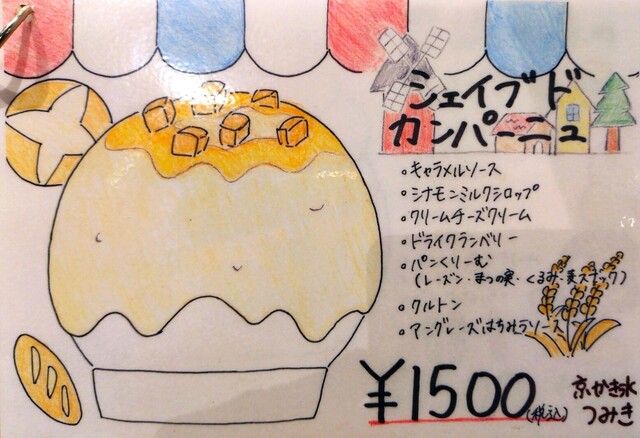 シェイブド
カンパーニュ
・キャラメルソース
・シナモンミルクシロップ
・クリームチーズクリーム
・ドライクランベリー
・パンくりーむ
(レーズン・まつの実・くるみ・麦スナック)
・クルトン
・アングレーズはちみつソース
¥1500(税込)
京かき氷
つみき